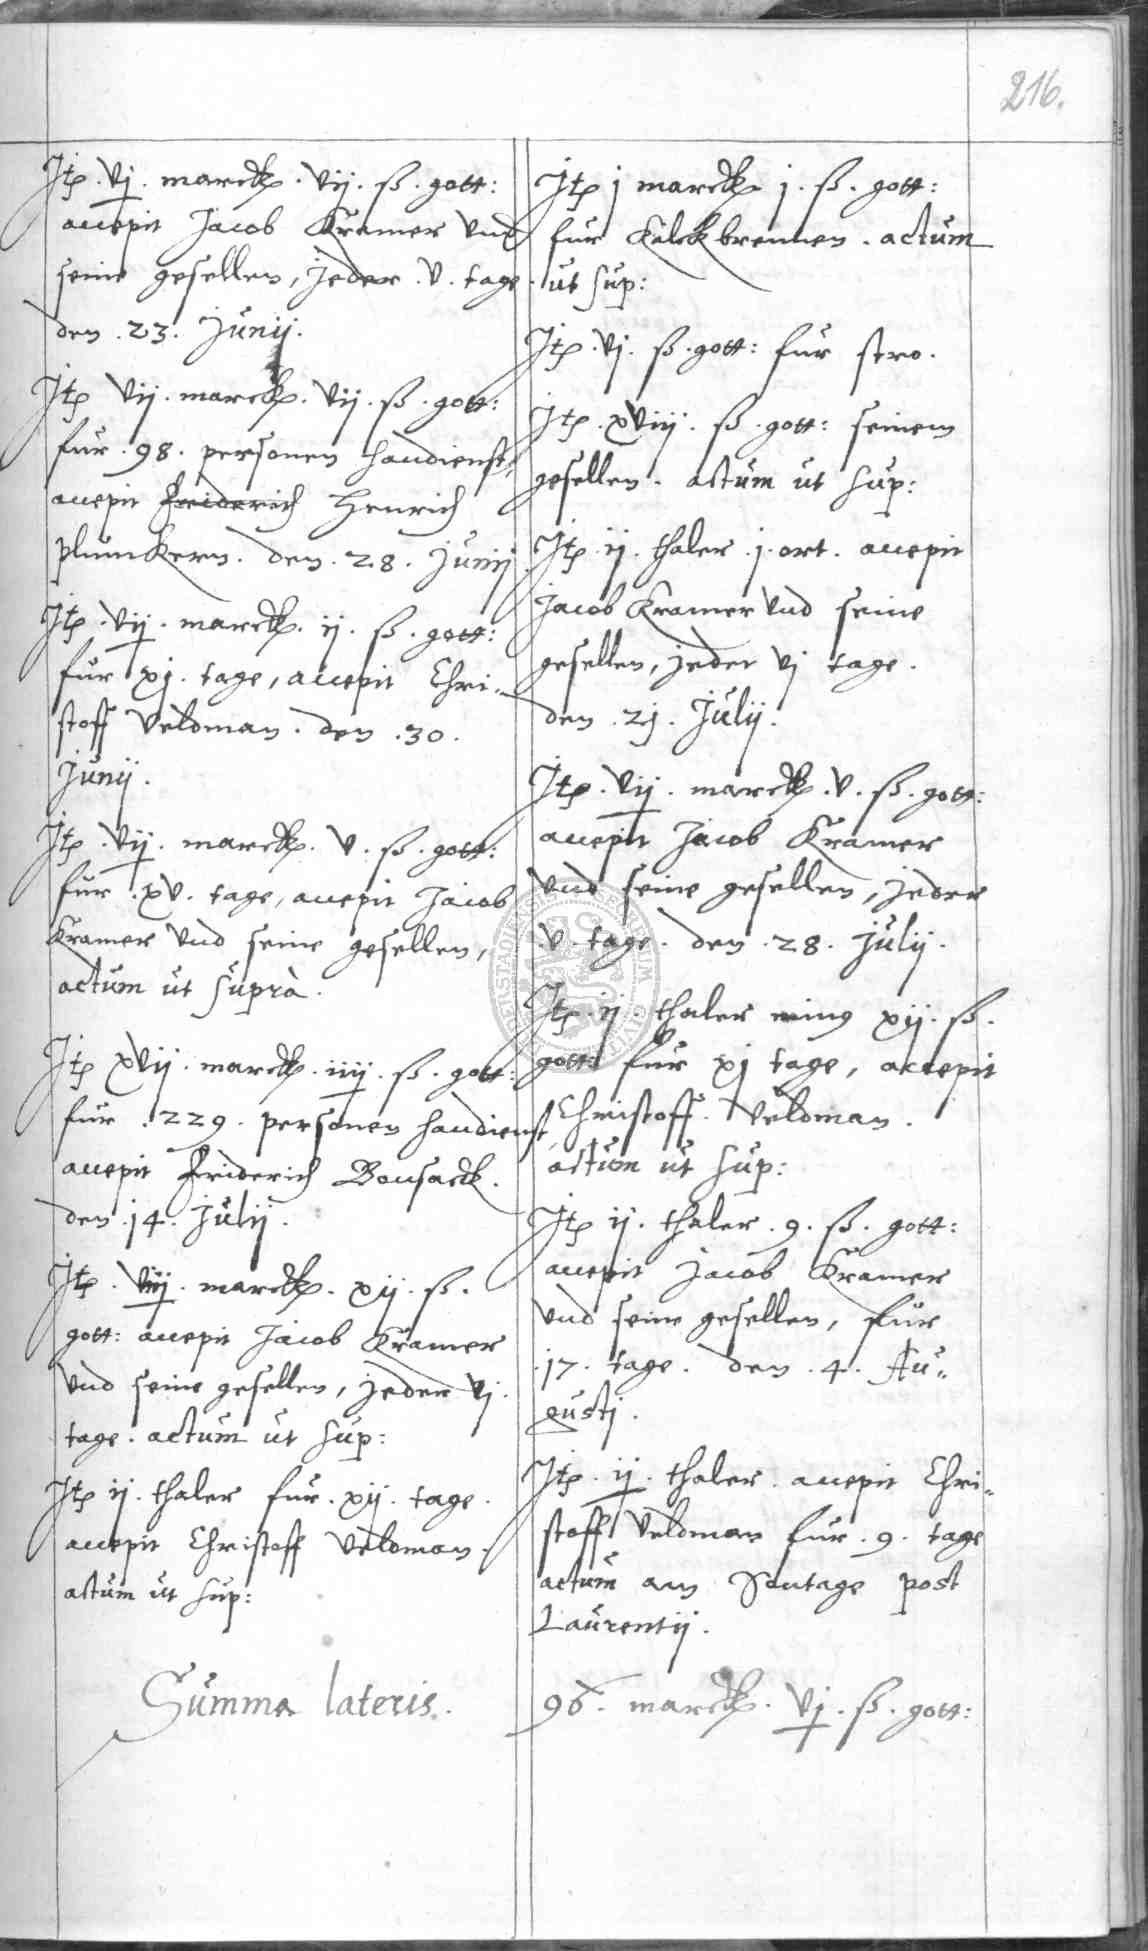 216.
Itp. vj. marck. vij. ß. gott:
accepit Jacob Kramer vnd
seine gesellen, jeder .v. tage
den .23. Junij.
Itp vij. marck. vij. ß. gott:
fur .98. personen handienst,
accepit Friderich Henrich
plumkern. den .28. Junij
Itp. vij. marck. ij. ß. gott:
fur xj. tage, accepit Chri-
stoff Veldman. den .30.
Junij.
Itp. vij. marck. v. ß. gott:
fur .xv. tage, accepit Jacob
Kramer vnd seine gesellen,
actum ut suprà.
Itp xvij. marck. iiij. ß. gott:
fur .229. personen handienst
accepit Friderich Bonsack.
den .14. Julij.
Itp. marck. xij. ß.
gott: accepit Jacob Kramer
vnd seine gesellen, jeder vj.
tage. actum ut sup:
Itp ij. thaler fur. xij. tage.
accepit Christoff Veldman.
actum ut sup:
Itp j marck j. ß. gott:
fur Kalckbrennen. actum
ut sup:
Itp. vj. ß. gott: fur stro.
Itp. xviij. ß. gott: seinem
gesellen. actum ut sup:
Itp. ij. thaler .j. ort. accepit
Jacob Kramer vnd seine
gesellen, jeder vj tage.
den .2j. Julij.
Itp. vij. marck. v. ß. gott:
accepit Jacob Kramer
vnd seine gesellen, jeder
.v. tage. den .28. Julij.
Itp. ij. thaler ming xij. ß.
gott: fur xj tage, accepit
Christoff. Veldman.
actum ut sup:
Itp ij. thaler. 9. ß. gott:
accepit Jacob Kramer
vnd seine gesellen, fur
.17. tage. den .4. Au-
gustj.
Itp. ij. thaler. accepit Chri-
stoff Veldman fur .9. tage
actum am Sontage post
Laurentij.
Summa lateris. 96. marck. vj. ß. gott: